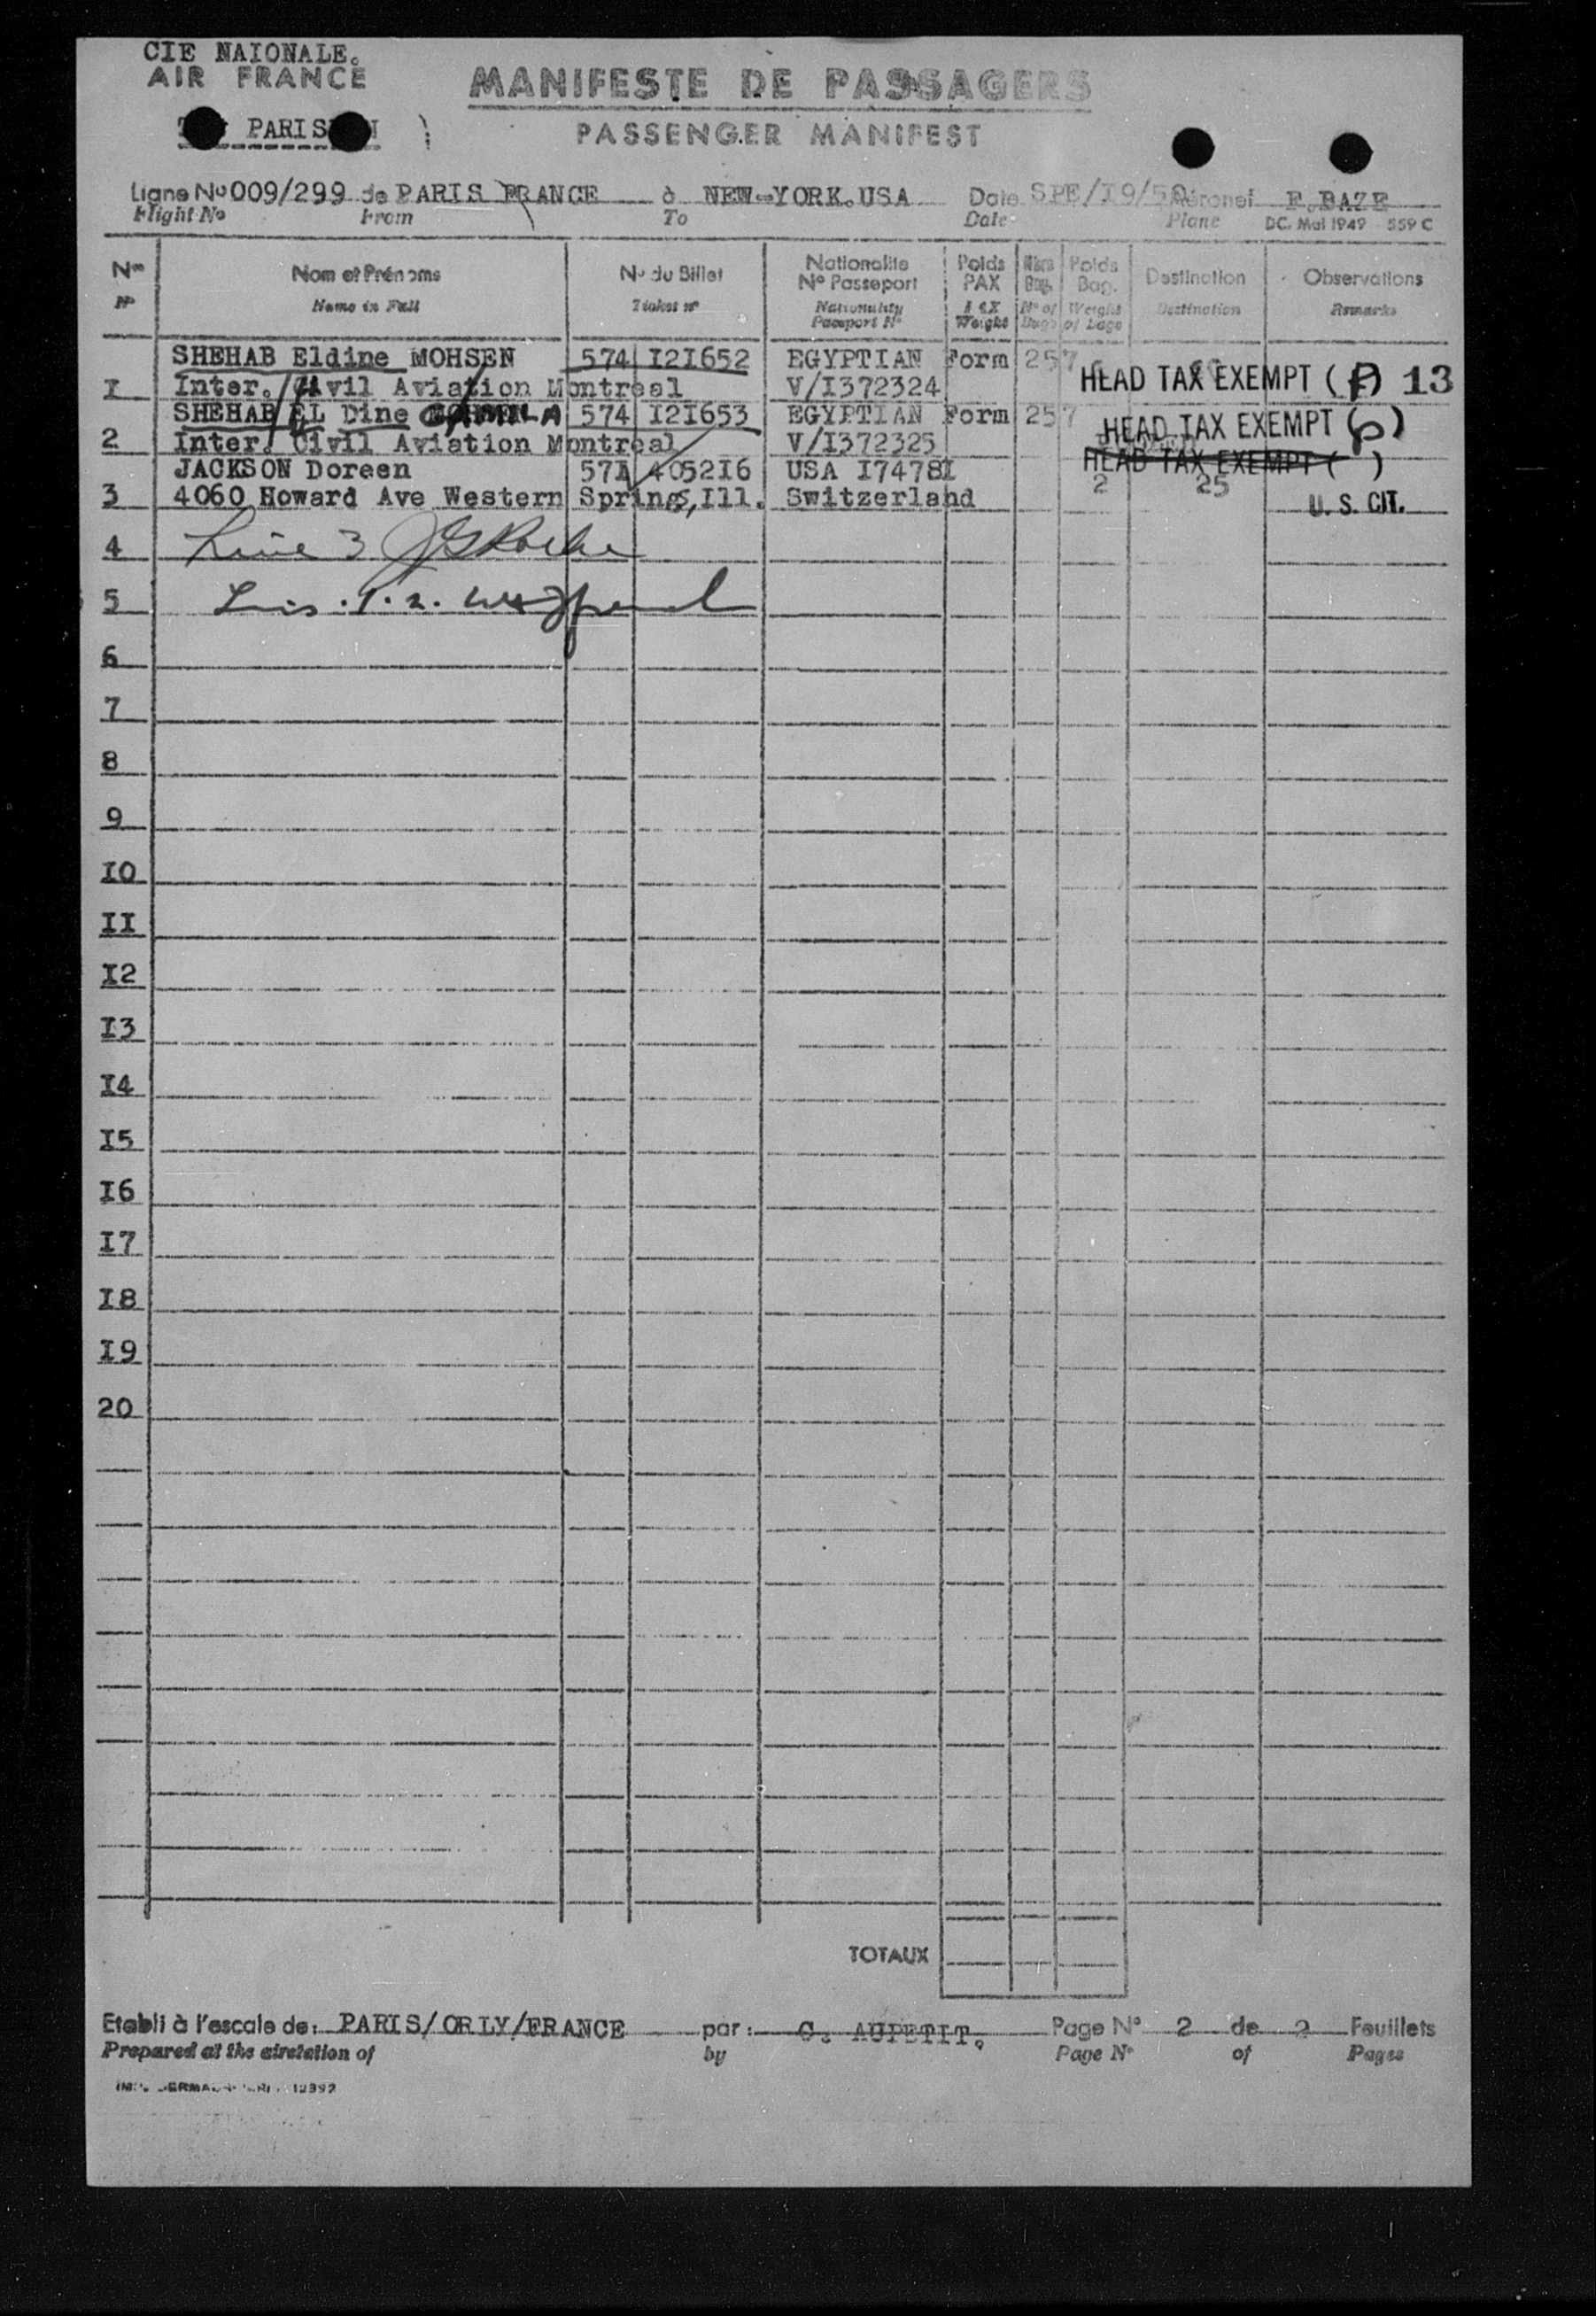 CIE NAIONALE.
AIR FRANCE
PARIS
MANIFESTE DE PASSAGERS
PASSENGER MANIFEST
Ligne No 009/299 de PARIS FRANCE à NEW-YORK.USA Date SPE/I9/50 Aéronef F.BAZE
Flight No From To Date Plane DC. Mai 1949 559 C
Nos Nom et Prénoms No du Billet Nationalite No Passeport Poids PAX Nbre Bag. Poids Bag. Destination Observations
No Name in Full Ticket no Nationality Passport No PAX Weight No of Bags Weight of Bags Destination Remarks
SHEHAB Eldine MOHSEN 574 I2I652 EGYPTIAN Form 257
I Inter. Civil Aviation Montreal V/I372324 HEAD TAX EXEMPT (P) 13
SHEHAB EL Dine 574 I2I653 EGYPTIAN Form 257
2 Inter. Civil Aviation Montreal V/I372325 HEAD TAX EXEMPT (P)
JACKSON Doreen 57I 4052I6 USA I7478I HEAD TAX EXEMPT ( )
3 4060 Howard Ave Western Springs,Ill. Switzerland 2 25 U. S. CIT.
4 Line 3
5
6
7
8
9
I0
II
I2
I3
I4
I5
I6
I7
I8
I9
20
TOTAUX
Etabli à l'escale de: PARIS/ORLY/FRANCE par: C. AUPETIT. Page No 2 de 2 Feuillets
Prepared at the airstation of by Page No of Pages